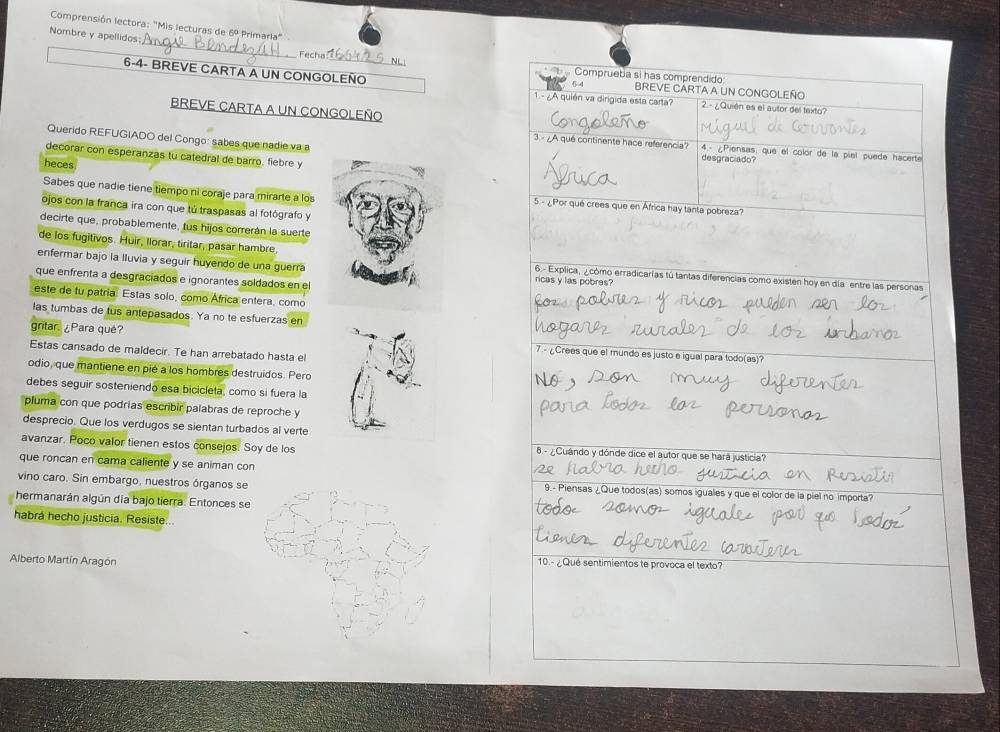 Comprensión lectora: "Mis lecturas de 6º Primaria"
Nombre y apellidos: Angie Fecha: NL:
6-4- BREVE CARTA A UN CONGOLEÑO
BREVE CARTA A UN CONGOLEÑO
Querido REFUGIADO del Congo: sabes que nadie va a
decorar con esperanzas tu catedral de barro, fiebre y
heces.
Sabes que nadie tiene tiempo ni coraje para mirarte a los
ojos con la franca ira con que tú traspasas al fotógrafo y
decirte que, probablemente, tus hijos correrán la suerte
de los fugitivos. Huir, llorar, tiritar, pasar hambre,
enfermar bajo la lluvia y seguir huyendo de una guerra
que enfrenta a desgraciados e ignorantes soldados en el
este de tu patria. Estas solo, como África entera, como
las tumbas de tus antepasados. Ya no te esfuerzas en
gritar. ¿Para qué?
Estas cansado de maldecir. Te han arrebatado hasta el
odio, que mantiene en pié a los hombres destruidos. Pero
debes seguir sosteniendo esa bicicleta, como si fuera la
pluma con que podrías escribir palabras de reproche y
desprecio. Que los verdugos se sientan turbados al verte
avanzar. Poco valor tienen estos consejos. Soy de los
que roncan en cama caliente y se animan con
vino caro. Sin embargo, nuestros órganos se
hermanarán algún día bajo tierra. Entonces se
habrá hecho justicia. Resiste...
Alberto Martín Aragón
Comprueba si has comprendido:
6-4 BREVE CARTA A UN CONGOLEÑO
1.- ¿A quién va dirigida esta carta?
Congoleño
2.- ¿Quién es el autor del texto?
Miguel de Corvontes
3.- ¿A qué continente hace referencia?
África
4.- ¿Piensas, que el color de la piel puede hacerte
desgraciado?
5.- ¿Por qué crees que en África hay tanta pobreza?
6.- Explica, ¿cómo erradicarías tú tantas diferencias como existen hoy en día entre las personas
ricas y las pobres?
los pobres y ricos pueden ser los
hogares rurales de los urbanos
7.- ¿Crees que el mundo es justo e igual para todo(as)?
No, son muy diferentes
para todos las personas
8.- ¿Cuándo y dónde dice el autor que se hará justicia?
se habra hecho justicia en Resistir
9.- Piensas ¿Que todos(as) somos iguales y que el color de la piel no importa?
todos somos iguales por que todos
tienen diferentes caracteres
10.- ¿Qué sentimientos te provoca el texto?